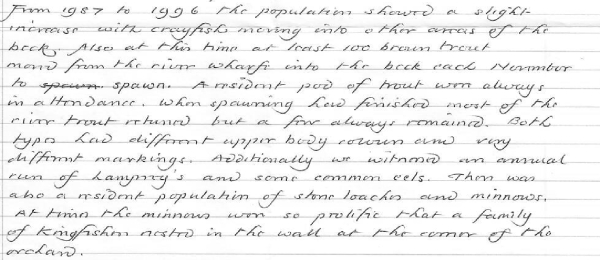 From 1987 to 1996 the population showed a slight
increase with crayfish moving into other areas of the
beck. Also at this time at least 100 brown trout
move from the river wharfe into the beck each November
to spawn spawn. A resident pod of trout were always
in attendance. When spawning had finished most of the
river trout returned but a few always remained. Both
types had different upper body colours and very
different markings. Additionally we witnessed an annual
run of Lamprey's and some common eels. There was
also a resident population of stone loaches and minnows.
At times the minnows were so prolific that a family
of Kingfishers nested in the wall at the corner of the
orchard.